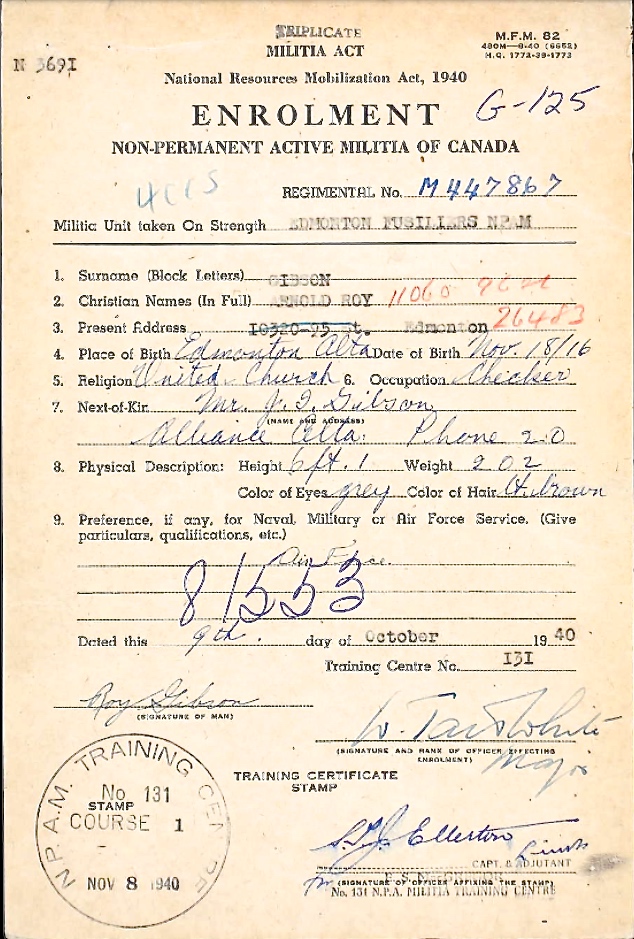 TRIPLICATE
MILITIA ACT
M.F.M. 82
480M—8-40 (6652)
H.Q. 1772-39-1773
N 3691
National Resources Mobilization Act, 1940
ENROLMENT G-125
NON-PERMANENT ACTIVE MILITIA OF CANADA
REGIMENTAL No. M447867
Militia Unit taken On Strength EDMONTON FUSILIERS NPAM
1. Surname (Block Letters) GIBSON
2. Christian Names (In Full) ARNOLD ROY 11060
3. Present Address 10320-95 St. Edmonton 26483
4. Place of Birth Edmonton Alta Date of Birth Nov. 18/16
5. Religion United Church 6. Occupation Checker
7. Next-of-Kin Mr. J. I. Gibson
(NAME AND ADDRESS)
Alliance Alta. Phone 2-0
8. Physical Description: Height 6ft. 1 Weight 202
Color of Eyes grey Color of Hair Lt. brown
9. Preference, if any, for Naval, Military or Air Force Service. (Give
particulars, qualifications, etc.)
Air Force.
81553
Dated this 9th. day of October 1940
Training Centre No. 131
Roy Gibson
(SIGNATURE OF MAN)
W. Tait White
(SIGNATURE AND RANK OF OFFICER EFFECTING
ENROLMENT) Major
TRAINING CERTIFICATE
STAMP
N.P.A.M. TRAINING CENTRE
No 131
STAMP
COURSE 1
NOV 8 1940
Ellerton
CAPT. & ADJUTANT
(SIGNATURE OF OFFICER AFFIXING THE STAMP)
No. 131 N.P.A. MILITIA TRAINING CENTRE